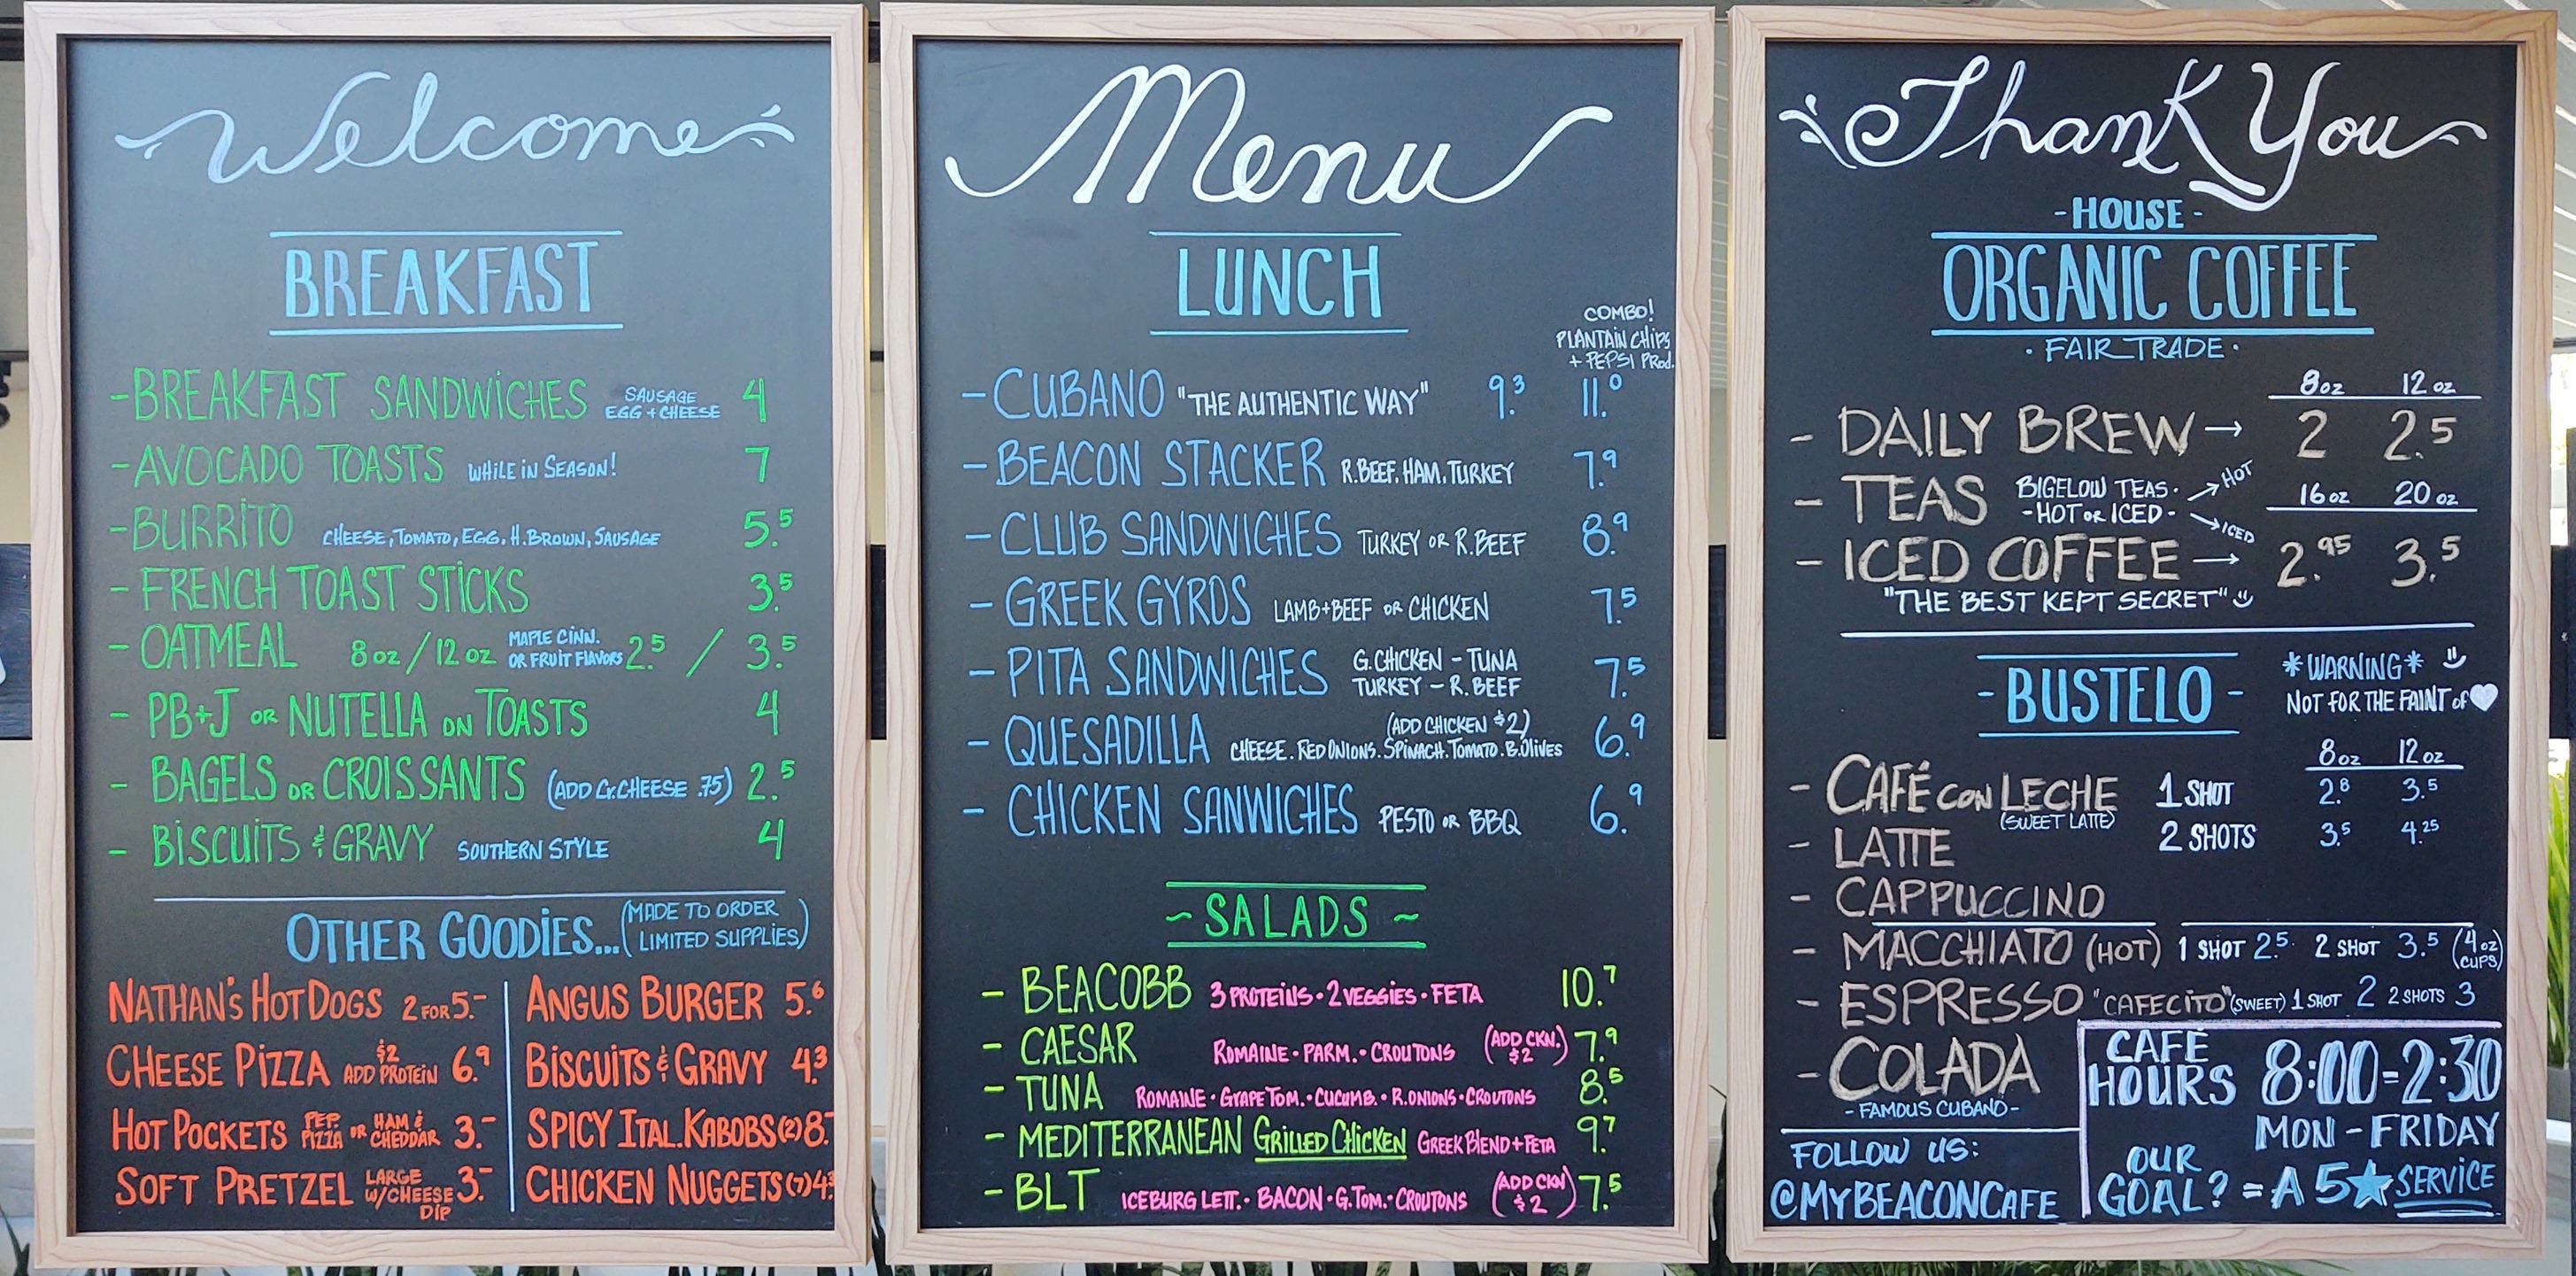 Welcome
BREAKFAST
- BREAKFAST SANDWICHES SAUSAGE EGG + CHEESE 4
- AVOCADO TOASTS WHILE IN SEASON! 7
- BURRITO CHEESE, TOMATO, EGG, H. BROWN, SAUSAGE 5.5
- FRENCH TOAST STICKS 3.5
- OATMEAL 8 oz / 12 oz MAPLE CINN. OR FRUIT FLAVORS 2.5 / 3.5
- PB+J OR NUTELLA ON TOASTS 4
- BAGELS OR CROISSANTS (ADD Cr. CHEESE .75) 2.5
- BISCUITS & GRAVY SOUTHERN STYLE 4
OTHER GOODIES... (MADE TO ORDER LIMITED SUPPLIES)
NATHAN'S HOT DOGS 2 FOR 5.-
CHEESE PIZZA $2 ADD PROTEIN 6.9
HOT POCKETS PEP. PIZZA OR HAM & CHEDDAR 3.-
SOFT PRETZEL LARGE W/CHEESE DIP 3.-
ANGUS BURGER 5.6
BISCUITS & GRAVY 4.3
SPICY ITAL. KABOBS (2) 8.
CHICKEN NUGGETS (7) 4.
Menu
LUNCH
COMBO!
PLANTAIN CHIPS
+ PEPSI PROD.
- CUBANO "THE AUTHENTIC WAY" 9.3 11.0
- BEACON STACKER R. BEEF. HAM. TURKEY 7.9
- CLUB SANDWICHES TURKEY OR R. BEEF 8.9
- GREEK GYROS LAMB+BEEF OR CHICKEN 7.5
- PITA SANDWICHES G. CHICKEN - TUNA TURKEY - R. BEEF 7.5
- QUESADILLA (ADD CHICKEN $2) CHEESE. RED ONIONS. SPINACH. TOMATO. B. OLIVES 6.9
- CHICKEN SANWICHES PESTO OR BBQ 6.9
~ SALADS ~
- BEACOBB 3 PROTEINS • 2 VEGGIES • FETA 10.7
- CAESAR ROMAINE • PARM. • CROUTONS (ADD CKN. $2) 7.9
- TUNA ROMAINE • GRAPE TOM. • CUCUMB. • R. ONIONS • CROUTONS 8.5
- MEDITERRANEAN GRILLED CHICKEN GREEK BLEND + FETA 9.7
- BLT ICEBURG LETT. • BACON • G. TOM. • CROUTONS (ADD CKN $2) 7.5
Thank You
- HOUSE -
ORGANIC COFFEE
• FAIR TRADE •
8 oz 12 oz
- DAILY BREW → 2 2.5
- TEAS BIGELOW TEAS • - HOT OR ICED - → HOT → ICED 16 oz 20 oz
- ICED COFFEE → 2.95 3.5
"THE BEST KEPT SECRET"
- BUSTELO -
*WARNING*
NOT FOR THE FAINT of ♥
8 oz 12 oz
- CAFÉ CON LECHE (SWEET LATTE) 1 SHOT 2.8 3.5
- LATTE 2 SHOTS 3.5 4.25
- CAPPUCCINO
- MACCHIATO (HOT) 1 SHOT 2.5 2 SHOT 3.5 (4 oz CUPS)
- ESPRESSO "CAFECITO" (SWEET) 1 SHOT 2 2 SHOTS 3
- COLADA
- FAMOUS CUBANO -
FOLLOW US:
@MYBEACONCAFE
CAFÉ HOURS 8:00-2:30
MON - FRIDAY
OUR GOAL? = A 5★ SERVICE